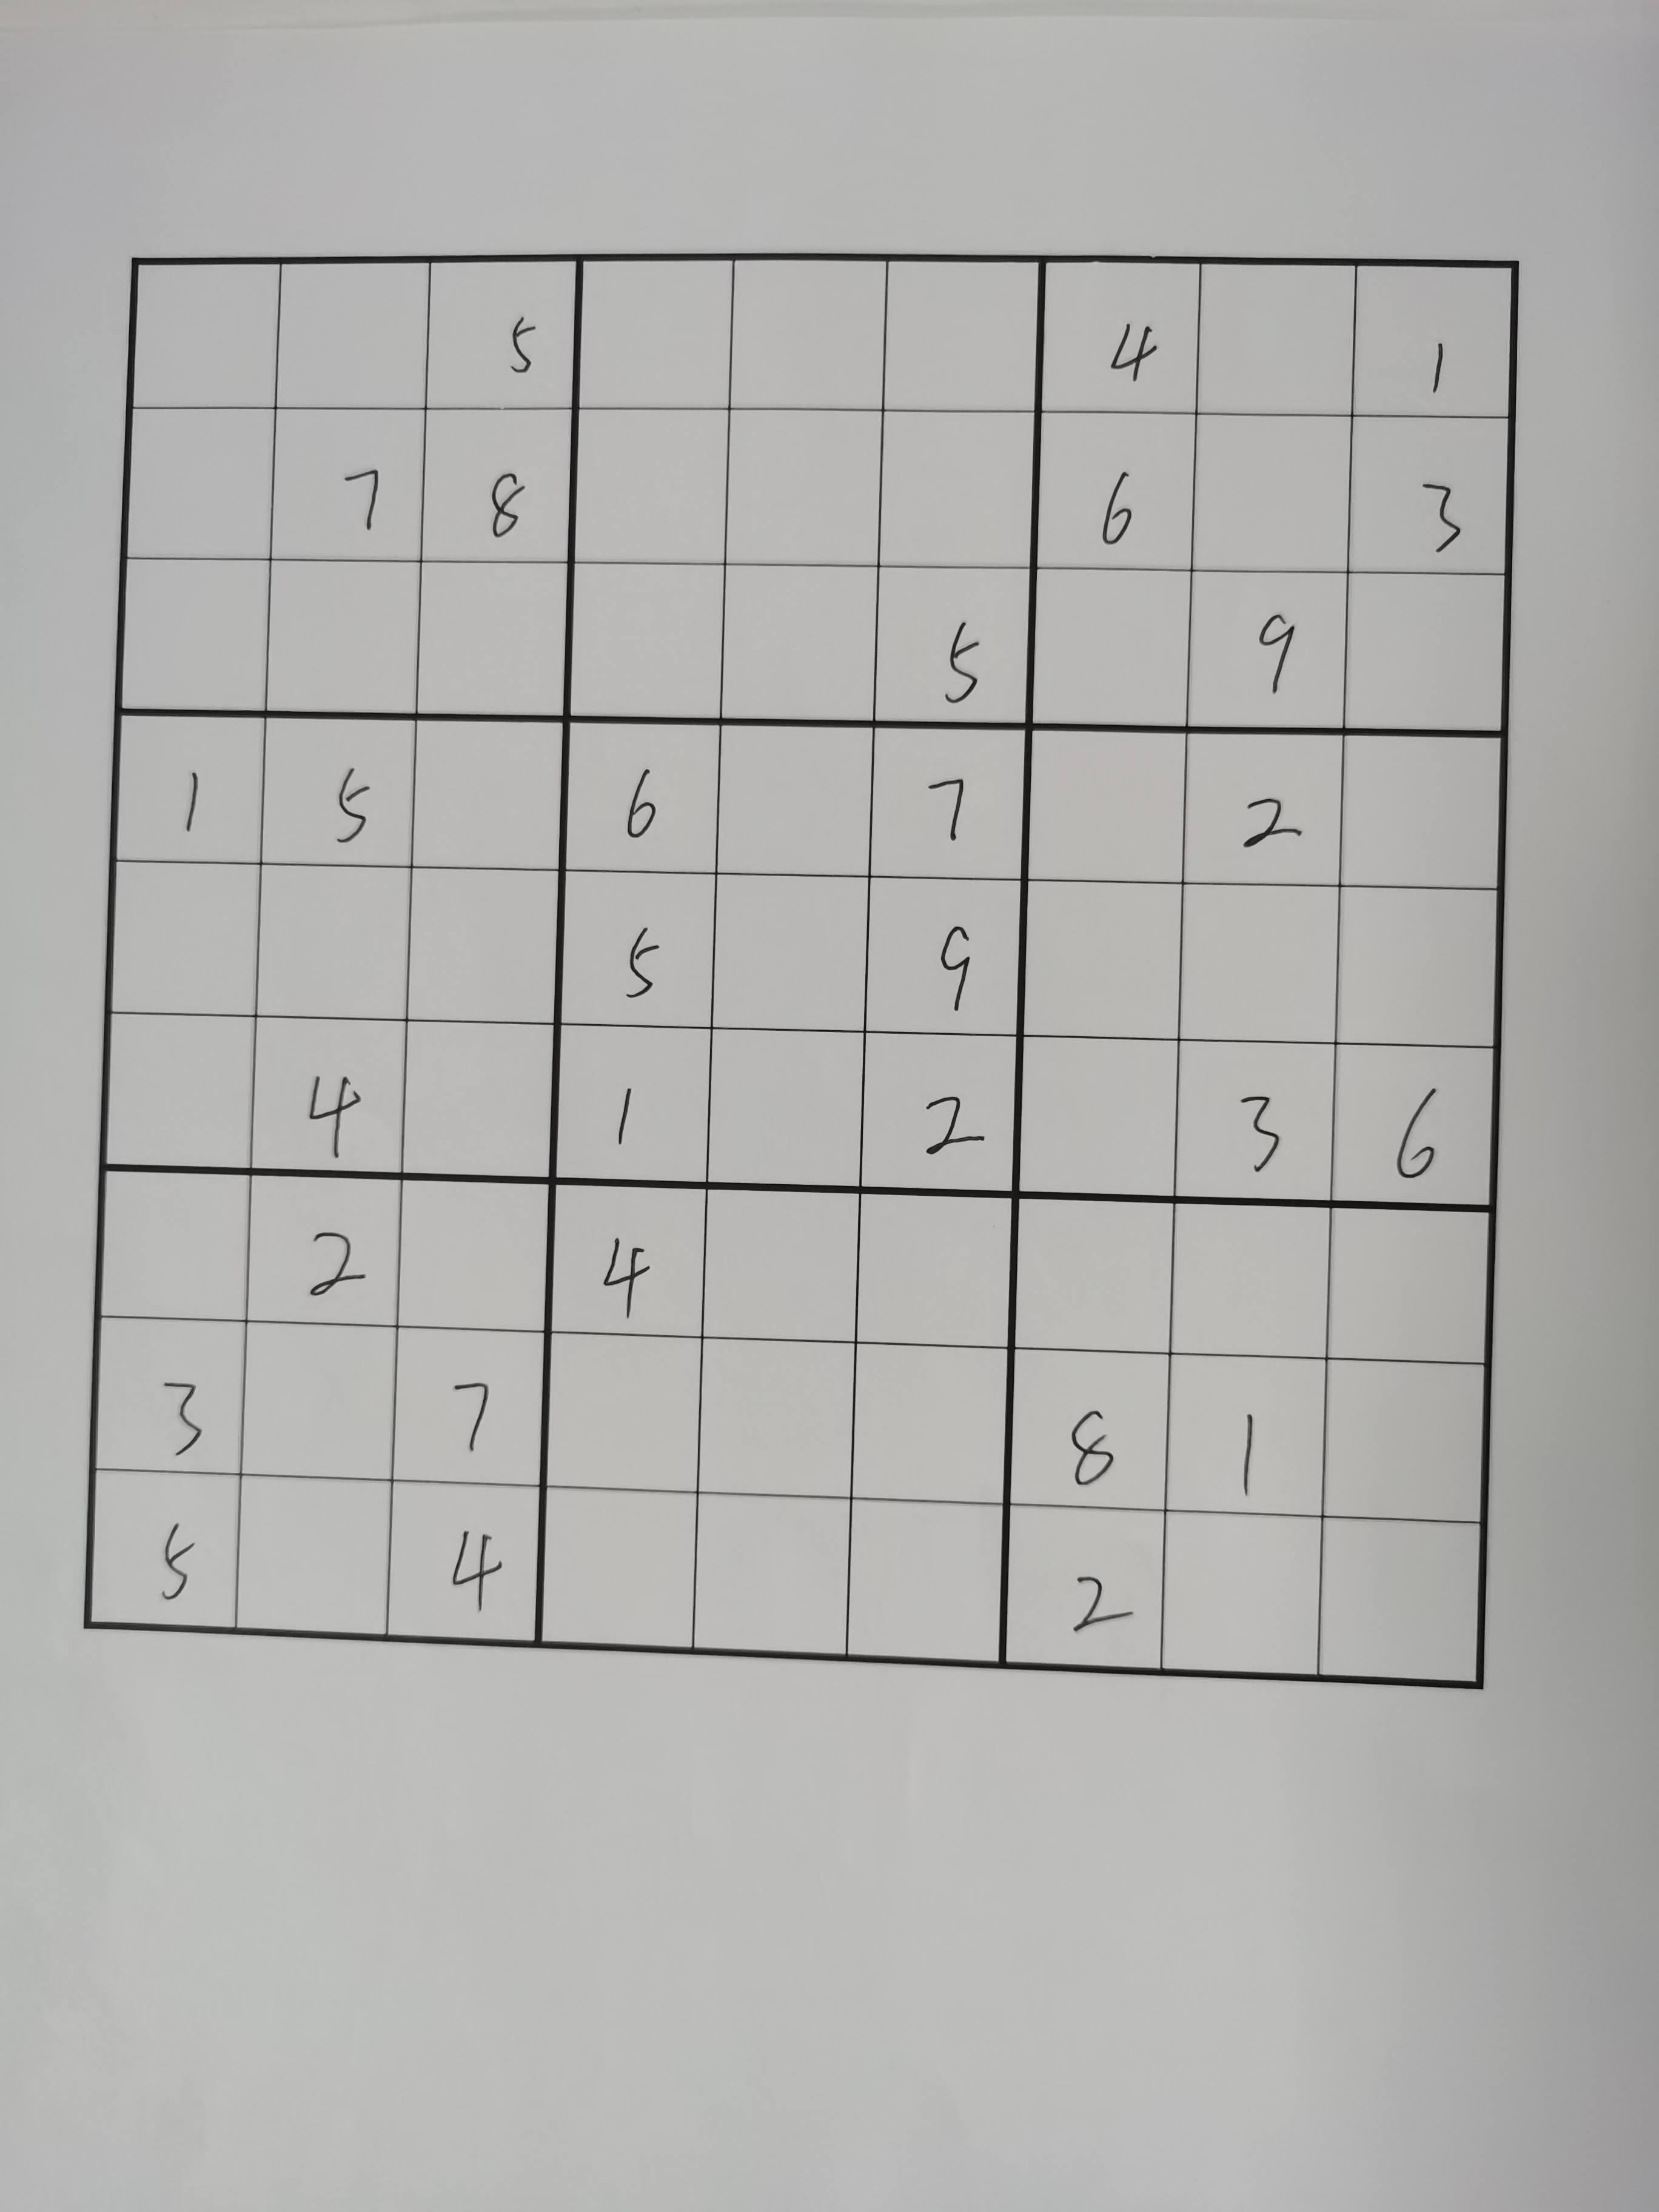 5 4 1
7 8 6 3
5 9
1 5 6 7 2
5 9
4 1 2 3 6
2 4
3 7 8 1
5 4 2